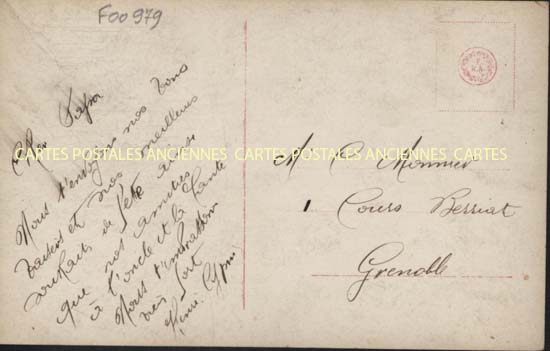 F00979
Cher Papa
Nous t'envoyons nos bons
baisers et nos meilleurs
souhaits de fête ainsi
que nos amitiés
à l'oncle et la tante
Nous t'embrassons
très fort
M C Monnier
1 Cours Berriat
Grenoble
CARTES POSTALES ANCIENNES CARTES POSTALES ANCIENNES CARTES POSTALES ANCIENNES